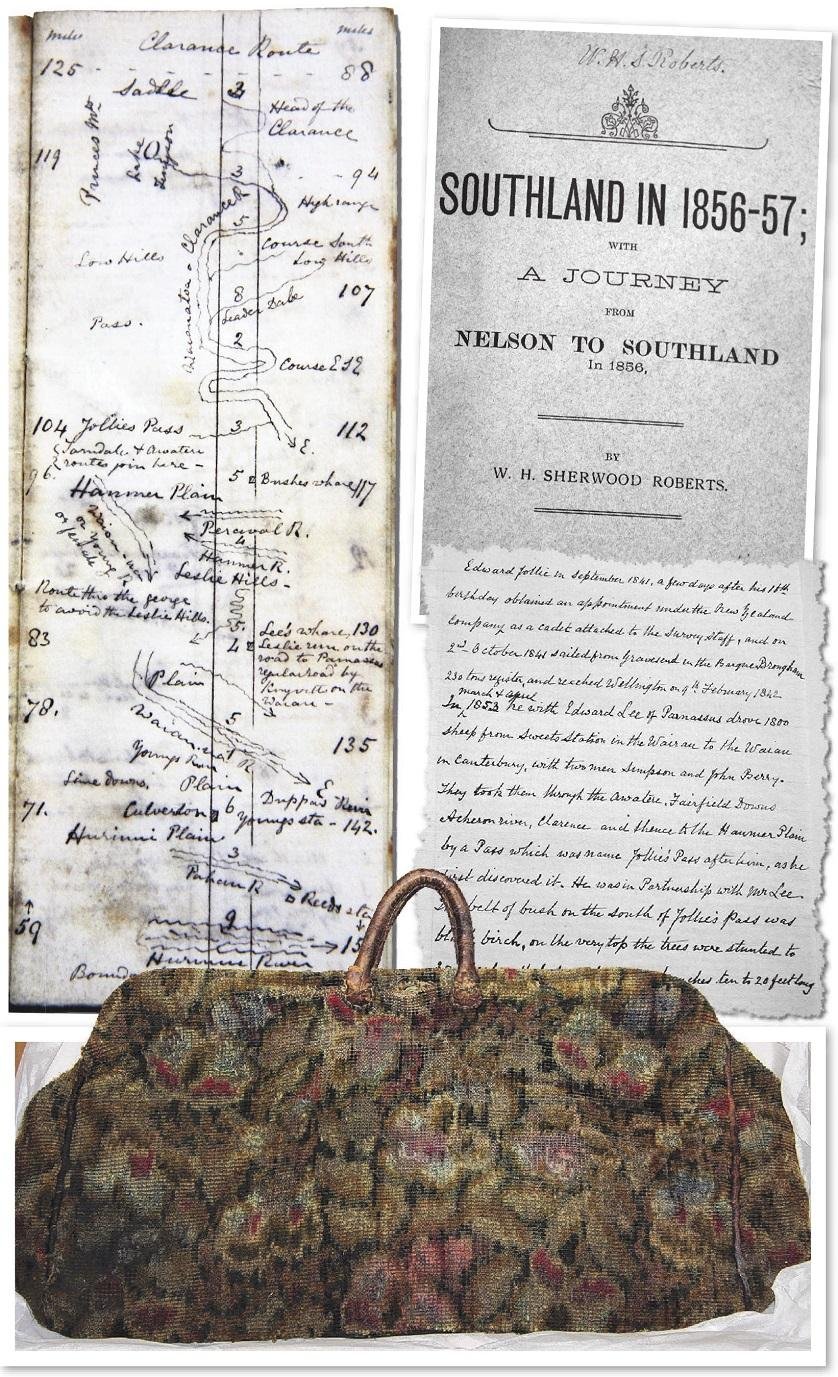 miles
miles
Clarance Route
125
88
Saddle
3
Head of the
Clarance
Princes Mts
119
Lake
3
94
High range
5
Clarance R
Course South
Low Hills
Low Hills
8
107
Leader Dale
Pass.
2
Course ESE
104 Jollies Pass
3
112
E.
Tarndale & Awatere
routes join here -
96.
5
Bushes whare 117
Hanmer Plain
Percival R.
4
Hanmer R.
Leslie Hills -
Route thro the gorge
to avoid the Leslie Hills.
5
Lee's whare, 130
83
4
Leslie run on the
road to Parnassus
regular road by
on the
Waiau -
Plain
78.
5
135
E
Plain
71.
Culverden
6
Youngs sta - 142.
Hurunui Plain
3
Pahau R
Reeds sta
59
9
15
Hurunui River
W. H. S. Roberts.
SOUTHLAND IN 1856-57;
WITH
A JOURNEY
FROM
NELSON TO SOUTHLAND
In 1856,
BY
W. H. SHERWOOD ROBERTS.
Edward Jollie in September 1841, a few days after his 16th
birthday obtained an appointment under the New Zealand
Company as a cadet attached to the Survey Staff, and on
2nd October 1841 sailed from Gravesend in the Barque Brougham
230 tons register, and reached Wellington on 9th February 1842
march & april
In 1853 he with Edward Lee of Parnassus drove 1800
sheep from Sweets Station in the Wairau to the Waiau
in Canterbury, with two men Simpson and John Berry.
They took them through the Awatere, Fairfield Downs
Acheron river, Clarence and thence to the Hanmer Plain
by a Pass which was name Jollie's Pass after him, as he
first discovered it. He was in Partnership with Mr Lee
belt of bush on the south of Jollie's Pass was
birch, on the very top the trees were stunted to
ten to 20 feet long